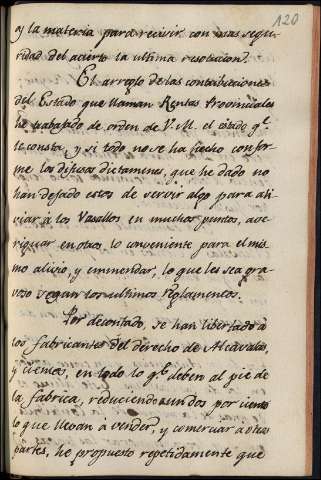 120
oy la materia para recivir con mas segu-
ridad del acierto la ultima resolucion.
El arreglo de las contribuciones
del Estado que llaman Rentas Provinciales
he trabajado de orden de V. M. el citado q.e
le consta, y si todo no se ha hecho confor-
me los difusos dictamenes, que he dado no
han dejado estos de servir algo para ali-
viar à los Vasallos en muchos puntos, ave-
riguar en otros, lo conveniente para el mis-
mo alivio, y enmendar, lo que les sea gra-
voso segun los ultimos reglamentos.
Por decontado, se han libertado à
los fabricantes del derecho de Alcavalas,
y cientos, en todo lo q.e deben al pie de
la fabrica, reduciendo à un dos por ciento
lo que llevan à vender, y comerciar à otras
partes, he propuesto repetidamente que